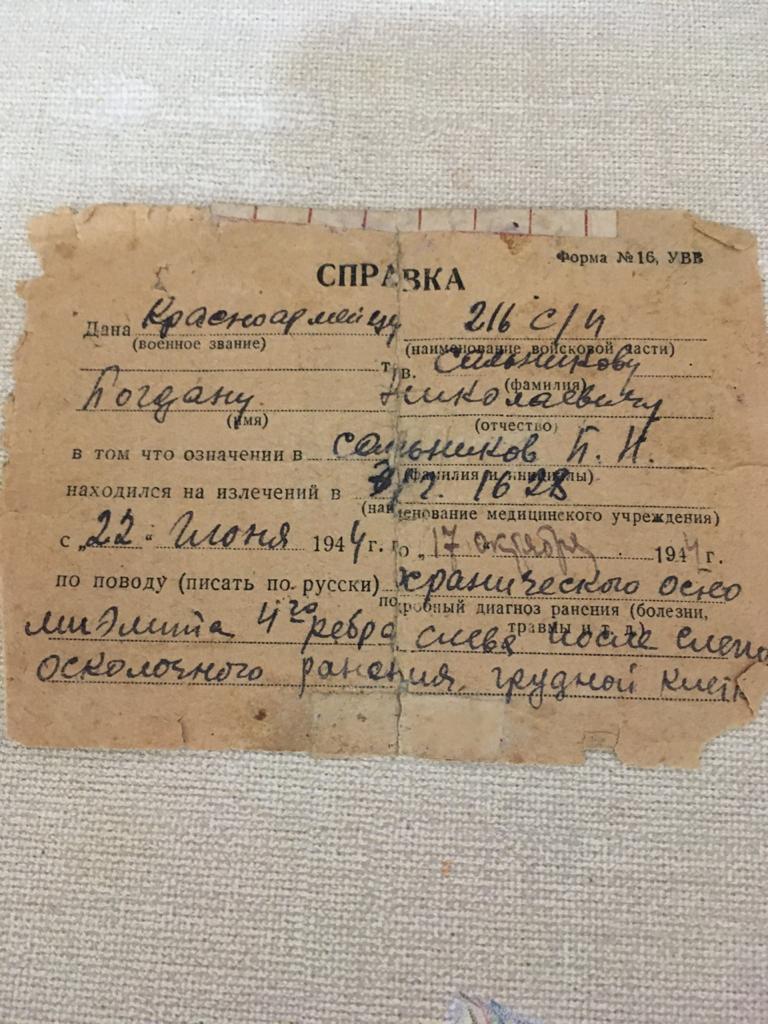 Форма №16, УВВ
СПРАВКА
Дана Красноармейцу 216 с/п
(военное звание) (наименование войсковой части)
т. в. Сильникову
(фамилия)
Богдану Николаевичу
(имя) (отчество)
в том что означении в Сильников Б. Н.
(фамилия и инициалы)
находился на излечений в Э/Г. 1628
(наименование медицинского учреждения)
с „22" Июня 1944 г. по „17 октября 1944 г.
по поводу (писать по русски) хранического остео
подробный диагноз ранения (болезни,
травмы и т. д.)
миэлита 4го ребра слева после слепого
осколочного ранения грудной клетк